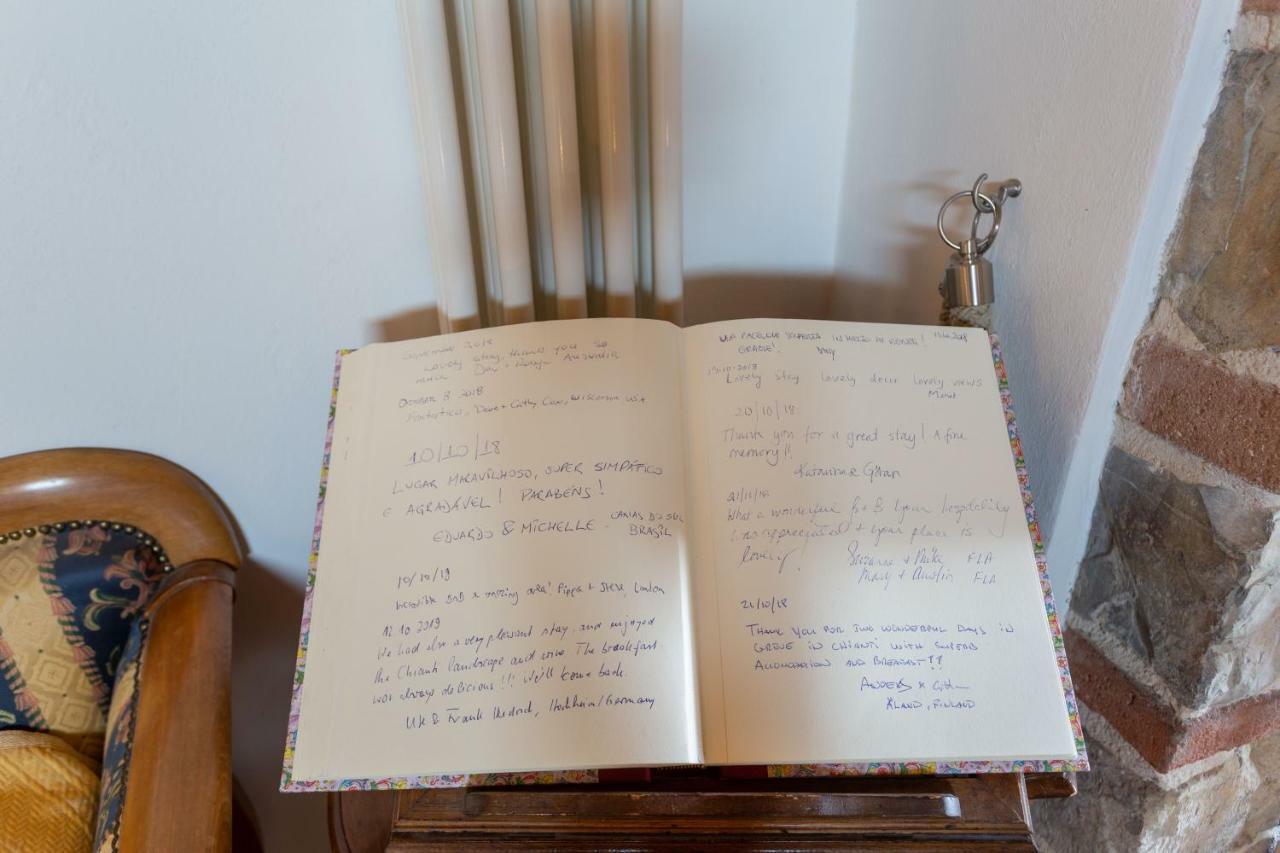 2018
Lovely stay, thank you so
much Australia
October 8 2018
Fantastico, Dave + Cathy Wisconsin USA
10/10/18
LUGAR MARAVILHOSO, SUPER SIMPÁTICO
E AGRADÁVEL! PARABÉNS!
EDUARDO & MICHELLE - CAXIAS DO SUL
BRASIL
10/10/19
Incredible BnB & amazing area! Pippa + Steve, London
12.10 2019
We had also a very pleasant stay, and enjoyed
the Chianti landscape and wine. The breakfast
was always delicious!!! We'll come back.
& Frank Hockheim/Germany
UNA PIACEVOLE SCOPERTA IN MEZZO AI
GRAZIE!
19-10-2018
Lovely stay lovely decor lovely views
20/10/18
Thank you for a great stay! A fine
memory!!
Katarina & Göran
21/10/18
What a wonderful B+B! your hospitality
was appreciated + your place is
lovely! Suzanne + Mike FLA
Mary + Austin FLA
21/10/18
THANK YOU FOR TWO WONDERFUL DAYS IN
GREVE IN CHIANTI WITH SUPERB
ACCOMODATION AND BREAKFAST!!
ANDERS &
ÅLAND, FINLAND